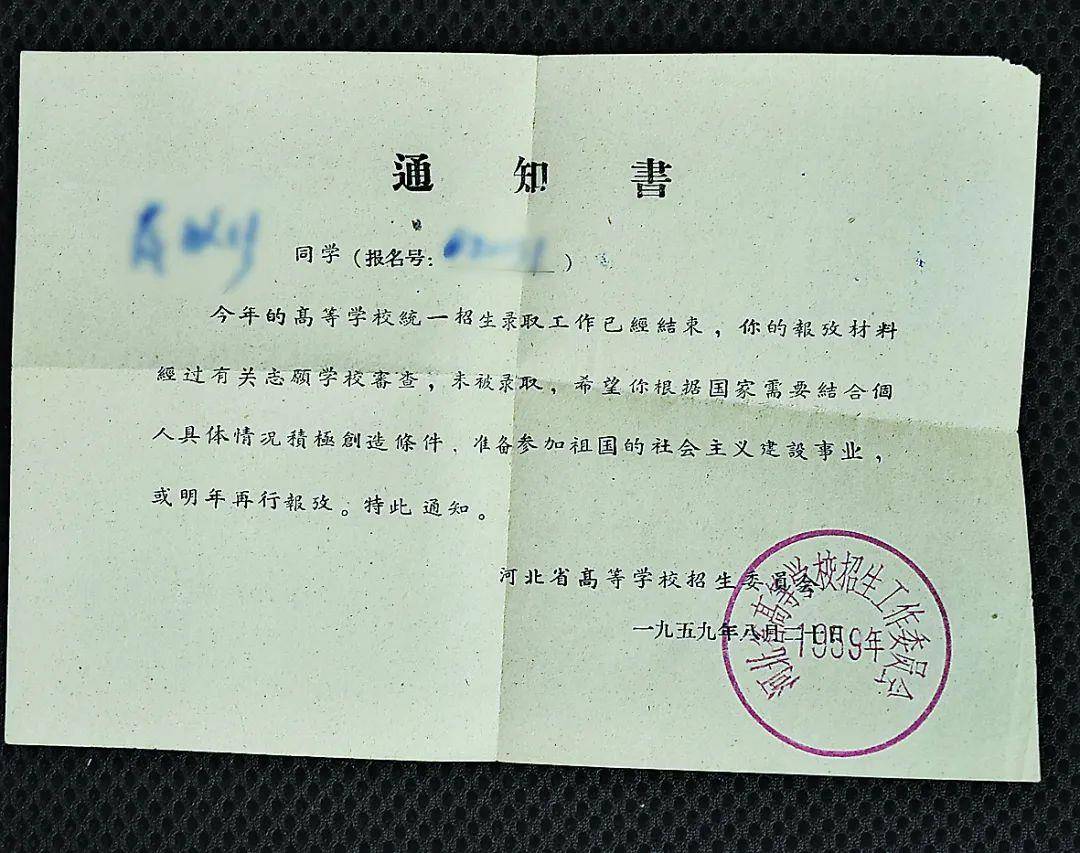 通知書
同学（报名号：）
今年的高等学校統一招生录取工作已經結束，你的報攷材料
經过有关志願学校審查，未被录取，希望你根据国家需要結合個
人具体情况積極創造條件，准备参加祖国的社会主义建設事业，
或明年再行報攷。特此通知。
河北省高等学校招生委員会
一九五九年八月二十日
河北省高等学校招生工作委员会
1959年